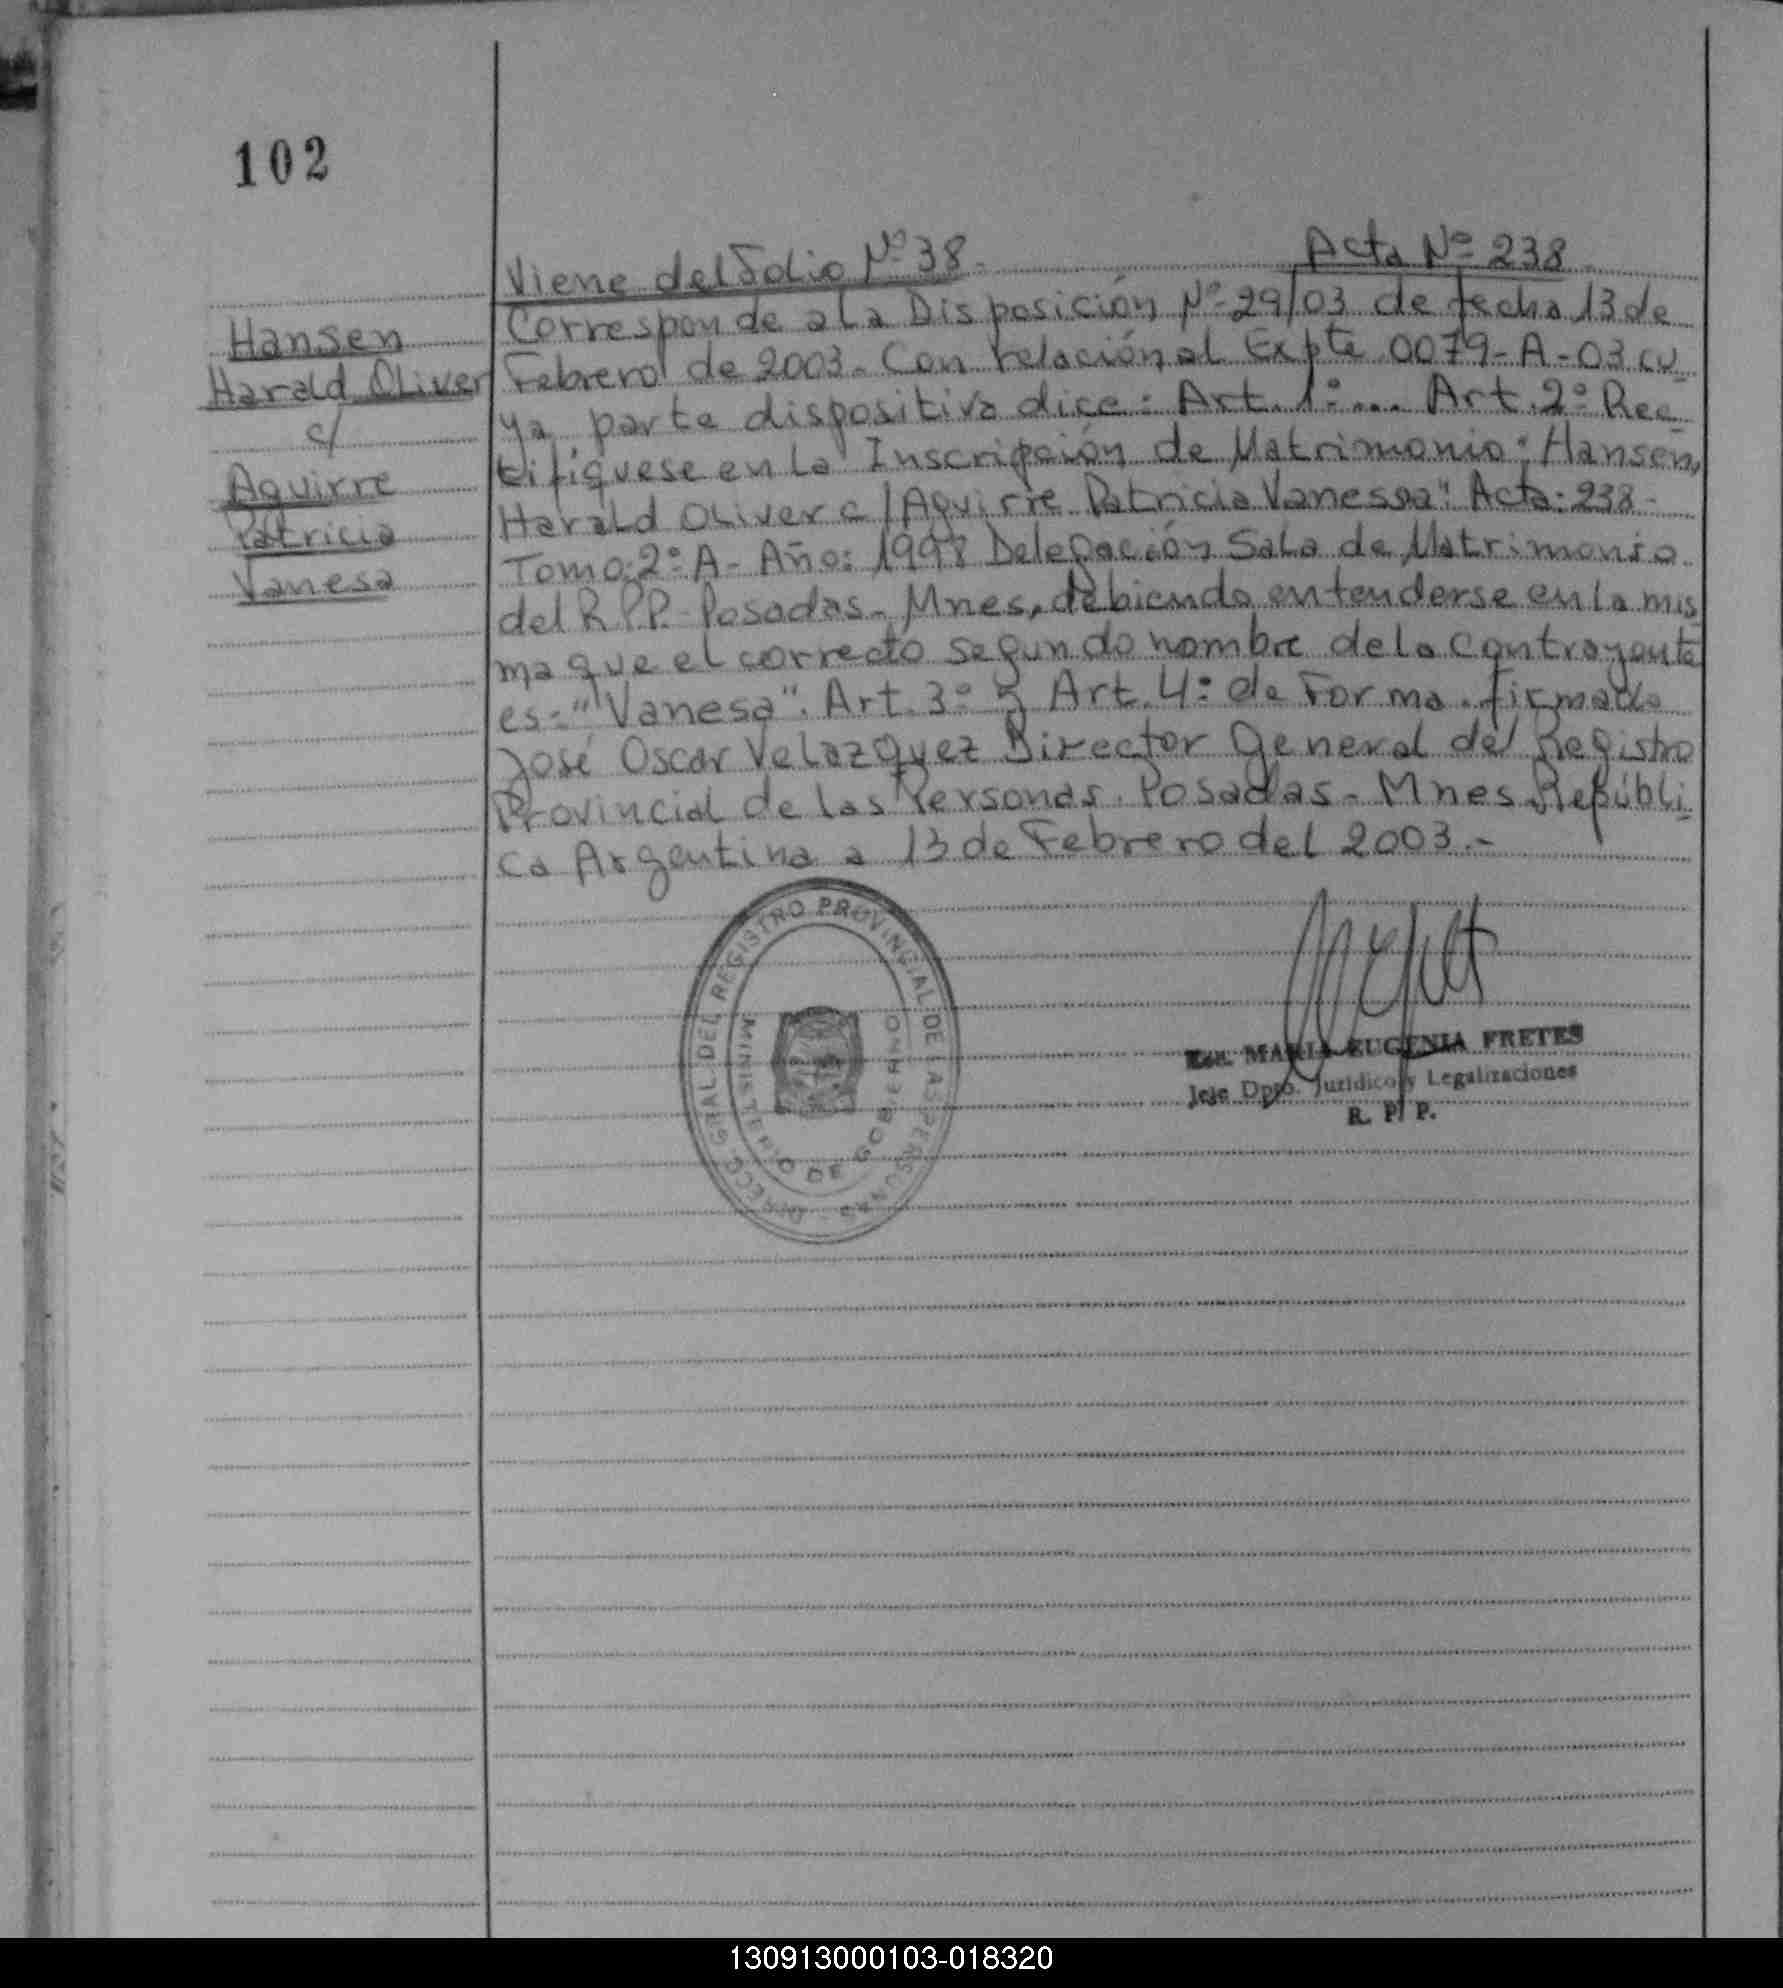 102
Viene del Folio Nº 38.
Acta Nº 238
Hansen
Harald Oliver
c/
Aguirre
Patricia
Vanesa
Corresponde a la Disposición Nº 29/03 de fecha 13 de
Febrero de 2003. Con relación al Expte 0079-A-03 cu
ya parte dispositiva dice: Art. 1º ... Art. 2º Rec
tifíquese en la Inscripción de Matrimonio: Hansen,
Harald Oliver c/Aguirre Patricia Vanessa": Acta: 238-
Tomo: 2º A- Año: 1998 Delegación Sala de Matrimonio
del R.P.P. Posadas- Mnes, debiendo entenderse en la mis
ma que el correcto segundo nombre de la contrayente
es: "Vanesa". Art. 3º y Art. 4º de Forma. firmado
José Oscar Velazquez Director General del Registro
Provincial de las Personas. Posadas - Mnes Repúbli
ca Argentina a 13 de Febrero del 2003.-
DIRECC. GRAL DEL REGISTRO PROVINCIAL DE LAS PERSONAS -
MINISTERIO DE GOBIERNO
MARIA EUGENIA FRETES
Jefe Dpto. Jurídico y Legalizaciones
R. P. P.
130913000103-018320